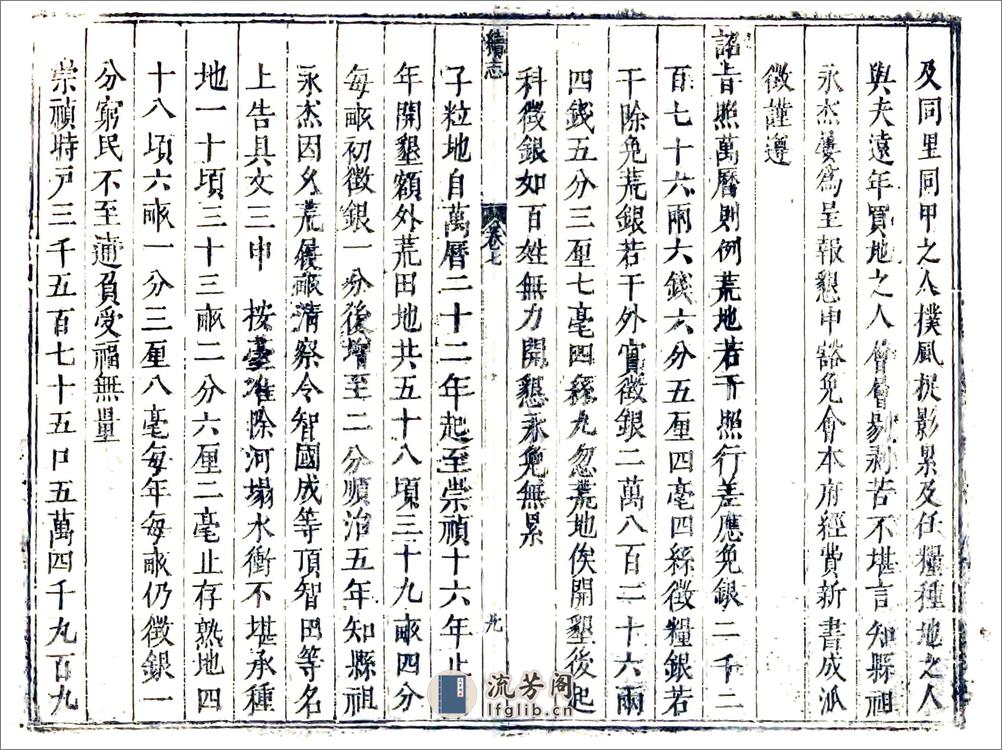 及同里同甲之人撲風捉影累及任糧種地之人
與夫遠年買地之人層層剝削苦不堪言知縣祖
永杰屢爲呈報懇申豁免會本府經費新書成派
徵謹遵
詔旨照萬曆則例荒地若干照行差應免銀二千二
百七十六兩六錢六分五厘四毫四絲徵糧銀若
干除免荒銀若干外實徵銀二萬八百二十六兩
四錢五分三厘七毫四絲九忽荒地俟開墾後起
科徵銀如百姓無力開懇永免無累
續志 卷七 九
子粒地自萬曆二十二年起至崇禎十六年止
年開墾額外荒田地共五十八頃三十九畝四分
每畝初徵銀一分後增至二分順治五年知縣祖
永杰因久荒侵畝清察令智國成等頂智田等名
上告具文三申 按臺准除河塌水衝不堪承種
地一十頃三十三畝二分六厘二毫止存熟地四
十八頃六畝一分三厘八毫每年每畝仍徵銀一
分窮民不至逋負受福無量
崇禎時戸三千五百七十五口五萬四千九百九
流芳阁
lfglib.cn